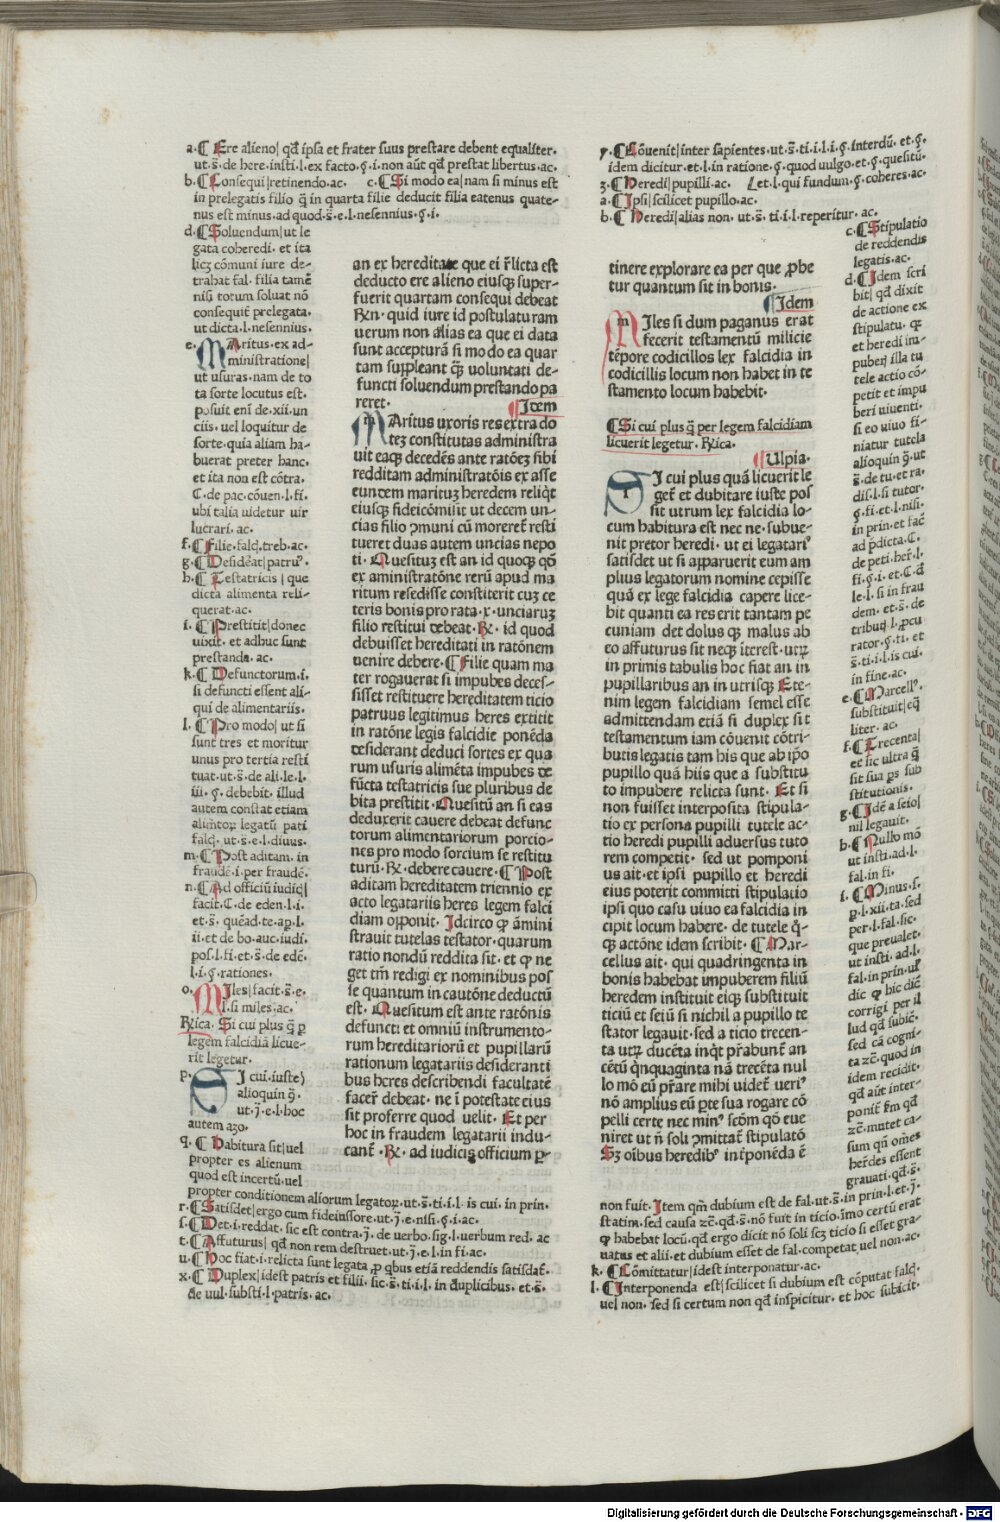 a. ¶ Ere alieno| qđ ipsa et frater suus prestare debent equaliter.
ut.s̄. de here. insti. l. ex facto. §. i. non aūt qđ prestat libertus. ac.
b. ¶ Consequi|retinendo. ac. c. ¶ Si modo ea| nam si minus est
in prelegatis filio q̄ in quarta filie deducit filia eatenus quate-
nus est minus. ad quod. s̄. e. l. nesennius. §. i.
d. ¶ Soluendum| ut le
gata coheredi. et ita
licꝫ cōmuni iure de-
trahat fal. filia tamē
nisi totum soluat nō
consequit̄ prelegata.
ut dicta. l. nesennius.
e. MAritus. ex ad-
ministratione|
ut usuras. nam de to
ta sorte locutus est.
posuit eni de. xii. un
ciis. uel loquitur de
sorte. quia aliam ha-
buerat preter hanc.
et ita non est cōtra.
C. de pac. cōuen. l. fi.
ubi talia uidetur uir
lucrari. ac.
f. ¶ Filie. falcꝭ. treb. ac.
g. ¶ Desiderāt| patruꝰ.
h. ¶ Testatricis | que
dicta alimenta reli-
querat. ac.
i. ¶ Prestitit| donec
uixit. et adhuc sunt
prestanda. ac.
k. ¶ Defunctorum. i.
si defuncti essent ali-
qui de alimentariis.
l. ¶ Pro modo| ut si
sunt tres et moritur
unus pro tertia resti
tuat. ut. s̄. de ali. le. l.
iii. §. debebit. illud
autem constat etiam
alimētoꝝ legatū pati
falcꝭ. ut. s̄. e. l. diuus.
m. ¶ Post aditam. in
fraudē. i. per fraudē.
n. ¶ Ad officiū iudicꝭ|
facit. C. de eden. l. i.
et. s̄. quēad. te. ap. l.
ii. et de bo. auc. iudi.
pos. l. fi. et. s̄. de edē.
l. i. §. rationes.
o. MIles| facit. s̄. e.
l. si miles. ac.
Rᷓica. Si cui plus q̄ p
legem falcidiā licue-
rit legetur.
p. SI cui. iuste)
alioquin q̄.
ut. j̄. e. l. hoc
autem azo.
q. ¶ Habitura sit| uel
propter es alienum
quod est incertū. uel
propter conditionem aliorum legatoꝝ. ut. s̄. ti. i. l. is cui. in prin.
r. ¶ Satisdet| ergo cum fideiussore. ut. j̄. e. nisi. §. i. ac.
s. ¶ Det. i. reddat. sic est contra. j̄. de uerbo. sig. l. uerbum red. ac
t. ¶ Affuturus| qđ non rem destruet. ut. j̄. e. l. in fi. ac.
u. ¶ Hoc fiat| i. relicta sunt legata ꝓ qbus etiā reddendis satisdat̄.
x. ¶ Duplex| idest patris et filii. sic. s̄. ti. i. l. in duplicibus. et. s̄.
de uul. substi. l. patris. ac.
an ex hereditate que ei r̄licta est
deducto ere alieno eiusqꝫ super-
fuerit quartam consequi debeat
Rn̄. quid iure id postulaturam
uerum non alias ea que ei data
sunt accepturā si modo ea quar
tam suppleant q̄ꝫ uoluntati de-
functi soluendum prestando pa
reret. ¶ Idem
MAritus uxoris res extra do
teꝫ constitutas administra
uit eaqꝫ decedēs ante ratōeꝫ sibi
redditam administratōis ex asse
euntem marituꝫ heredem reliqt̄
eiusqꝫ fideicōmisit ut decem un-
cias filio ꝯmuni cū moreret̄ resti
tueret duas autem uncias nepo
ti. Quesituꝫ est an id quoqꝫ qđ
ex aministratōne rerū apud ma
ritum resedisse constiterit cuꝫ ce
teris bonis pro rata. x. unciaruꝫ
filio restitui debeat. R̄. id quod
debuisset hereditati in ratōnem
uenire debere. ¶ Filie quam ma
ter rogauerat si impubes deces-
sisset restituere hereditatem ticio
patruus legitimus heres extitit
in ratōne legis falcidie ponēda
desiderant deduci sortes ex qua
rum usuris alimēta impubes de
fūcta testatricis sue pluribus de
bita prestitit. Quesitū an si eas
deduxerit cauere debeat defunc
torum alimentariorum portio-
nes pro modo sorcium se restitu
turū. R̄. debere cauere. ¶ Post
aditam hereditatem triennio ex
acto legatariis heres legem falci
diam opponit. Idcirco ꝙ āmini
strauit tutelas testator. quarum
ratio nondū reddita sit. et ꝙ ne
get tm̄ redigi ex nominibus pos
se quantum in cautōne deductū
est. Quesitum est ante ratōnis
defuncti et omniū instrumento-
rum hereditariorū et pupillarū
rationum legatariis desideranti
bus heres describendi facultatē
facer̄ debeat. ne i potestate eius
sit proferre quod uelit. Et per
hoc in fraudem legatarii indu-
cant̄. R̄. ad iudicis officium ꝑ-
y. ¶ Cōuenit| inter sapientes. ut. s̄. ti. i. l. i. §. interdū. et. §.
idem dicitur. et. l. in ratione. §. quod uulgo. et. §. quesitū.
z. ¶ Heredi| pupilli. ac. [et. l. qui fundum. §. coheres. ac.
a. ¶ Ipsi| scilicet pupillo. ac.
b. ¶ Heredi| alias non. ut. s̄. ti. i. l. reperitur. ac.
tinere explorare ea per que ꝓbe
tur quantum sit in bonis.
¶ Idem
MIles si dum paganus erat
fecerit testamentū milicie
tēpore codicillos lex falcidia in
codicillis locum non habet in te
stamento locum habebit.
¶ Si cui plus q̄ per legem falcidiam
licuerit legetur. Rᷓica.
¶ Ulpia.
SI cui plus quā licuerit le
get̄ et dubitare iuste pos
sit utrum lex falcidia lo-
cum habitura est nec ne. subue-
nit pretor heredi. ut ei legatariꝰ
satisdet ut si apparuerit eum am
plius legatorum nomine cepisse
quā ex lege falcidia capere lice-
bit quanti ea res erit tantam pe
cuniam det dolus qꝫ malus ab
eo affuturus sit neqꝫ īterest. utꝝ
in primis tabulis hoc fiat an in
pupillaribus an in utrisqꝫ Ete-
nim legem falcidiam semel esse
admittendam etiā si duplex sit
testamentum iam cōuenit cōtri-
butis legatis tam his que ab ip̄o
pupillo quā hiis que a substitu
to impubere relicta sunt. Et si
non fuisset interposita stipula-
tio ex persona pupilli tutele ac-
tio heredi pupilli aduersus tuto
rem competit. sed ut pomponi
us ait. et ipsi pupillo et heredi
eius poterit committi stipulacio
ipsi quo casu uiuo ea falcidia in
cipit locum habere. de tutele q̄-
qꝫ actōne idem scribit. ¶ Mar-
cellus ait. qui quadringenta in
bonis habebat impuberem filiū
heredem instituit eiqꝫ substituit
ticiū et seiū si nichil a pupillo te
stator legauit. sed a ticio trecen-
ta utꝝ ducēta inq̄t pr̄abunt̄ an
cētū q̄nquaginta nā trecēta nul
lo mō eū pr̄are mihi uidet̄ ueriꝰ
nō amplius eū ꝑte sua rogare cō
pelli certe nec minꝰ scōm qō eue
niret ut n̄ soli ꝯmittat̄ stipulatō
Sꝫ oībus heredibꝰ int̄ponēda ē
c. ¶ Stipulatio
de reddendis
legatis. ac.
d. ¶ Idem scri
bit| qđ dixit
de actione ex
stipulatu. qꝫ
et heredi im-
puber̄ illa tu
tele actio cō-
petit et impu
beri uiuenti.
si eo uiuo fi-
niatur tutela
alioquin q̄. ut
s̄. de tu. et ra.
dis. l. si tutor.
§. fi. et. l. nisi.
in prin. et fac̄
ad p̄dicta. C.
de peti. her̄. l.
fi. §. i. et. C. đ
le. l. si in frau
dem. et. s̄. de
tribuꝭ. l. ꝓcu
rator. §. ti. et
s̄. ti. i. l. is cui.
in fine. ac.
e. ¶ Marcellꝰ.
substituit| eq̄
liter. ac.
f. ¶ Trecenta|
et sic ultra q̄
sit sua ꝑs sub
stitutionis.
g. ¶ Idē a seio|
nil legauit.
h. ¶ Nullo mō
ut insti. ad. l.
fal. in fi.
i. ¶ Minus. s̄.
ꝑ. l. xii. ta. sed
per. l. fal. sic.
que preualet.
ut insti. ad. l.
fal. in prin. uꝉ
dic ꝙ hic dic̄
corrigi per il
lud qđ subic̄.
sed cā cogni-
ta zc̄. quod in
idem recidit.
qđ aūt inter-
ponit̄ s̄m qđ
zc̄. mutet ca-
sum qn̄ om̄es
her̄des essent
grauati. qđ. s̄.
non fuit. Item qm̄ dubium est de fal. ut. s̄. in prin. l. et. j̄.
statim. sed causa zc̄. qđ. s̄. nō fuit in ticio. īmo certū erat
ꝙ habebat locū. qđ ergo dicit nō soli scꝫ ticio si esset gra-
uatus et alii. et dubium esset de fal. competat̄ uel non. ac.
k. ¶ Cōmittatur| idest interponatur. ac.
l. ¶ Interponenda est| scilicet si dubium est cōputat falcꝭ.
uel non. sed si certum non qđ inspicitur. et hoc subicit.
Digitalisierung gefördert durch die Deutsche Forschungsgemeinschaft - DFG